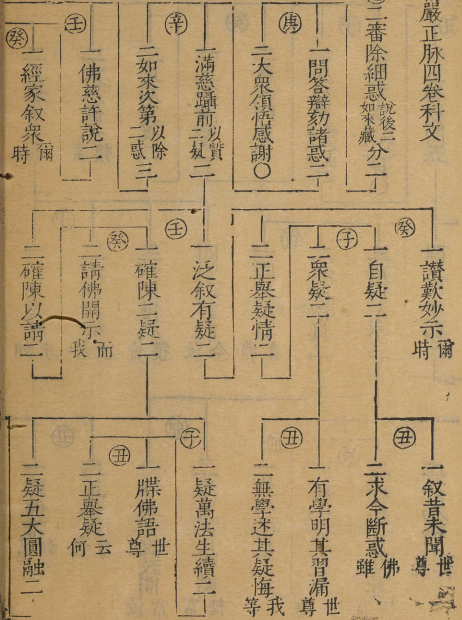 嚴正脉四卷科文
二審除細惑說後二如來藏分二
庚
一問答辯劾諸惑二
二大衆領悟感謝〇
辛
一滿慈躡前以質二疑二
二如來次第以除二惑三
壬
一佛慈許說二
癸
一經家叙衆爾時
癸
一讚歎妙示爾時
一自疑二
子
二衆疑二
二正舉疑情二
一泛叙有疑二
壬
一確陳二疑二
癸
二請佛開示而我
二確陳以請二
丑
一叙昔未聞世尊
二求今斷惑佛雖
一有學明其習漏世尊
丑
二無學述其疑悔我等
子
一疑萬法生續二
一牒佛語世尊
丑
二正舉疑云何
二疑五大圓融二